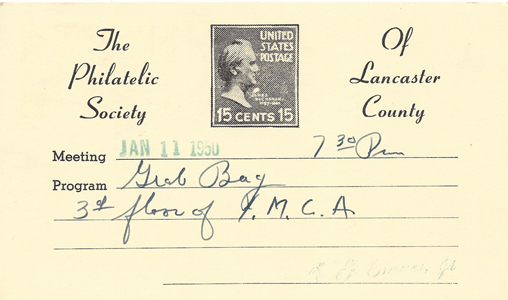 The
Philatelic
Society
UNITED
STATES
POSTAGE
JAMES
BUCHANAN
1857-1861
15 CENTS 15
Of
Lancaster
County
Meeting JAN 11 1950 7 30 Pm
Program Grab Bag
3rd floor of Y.M.C.A